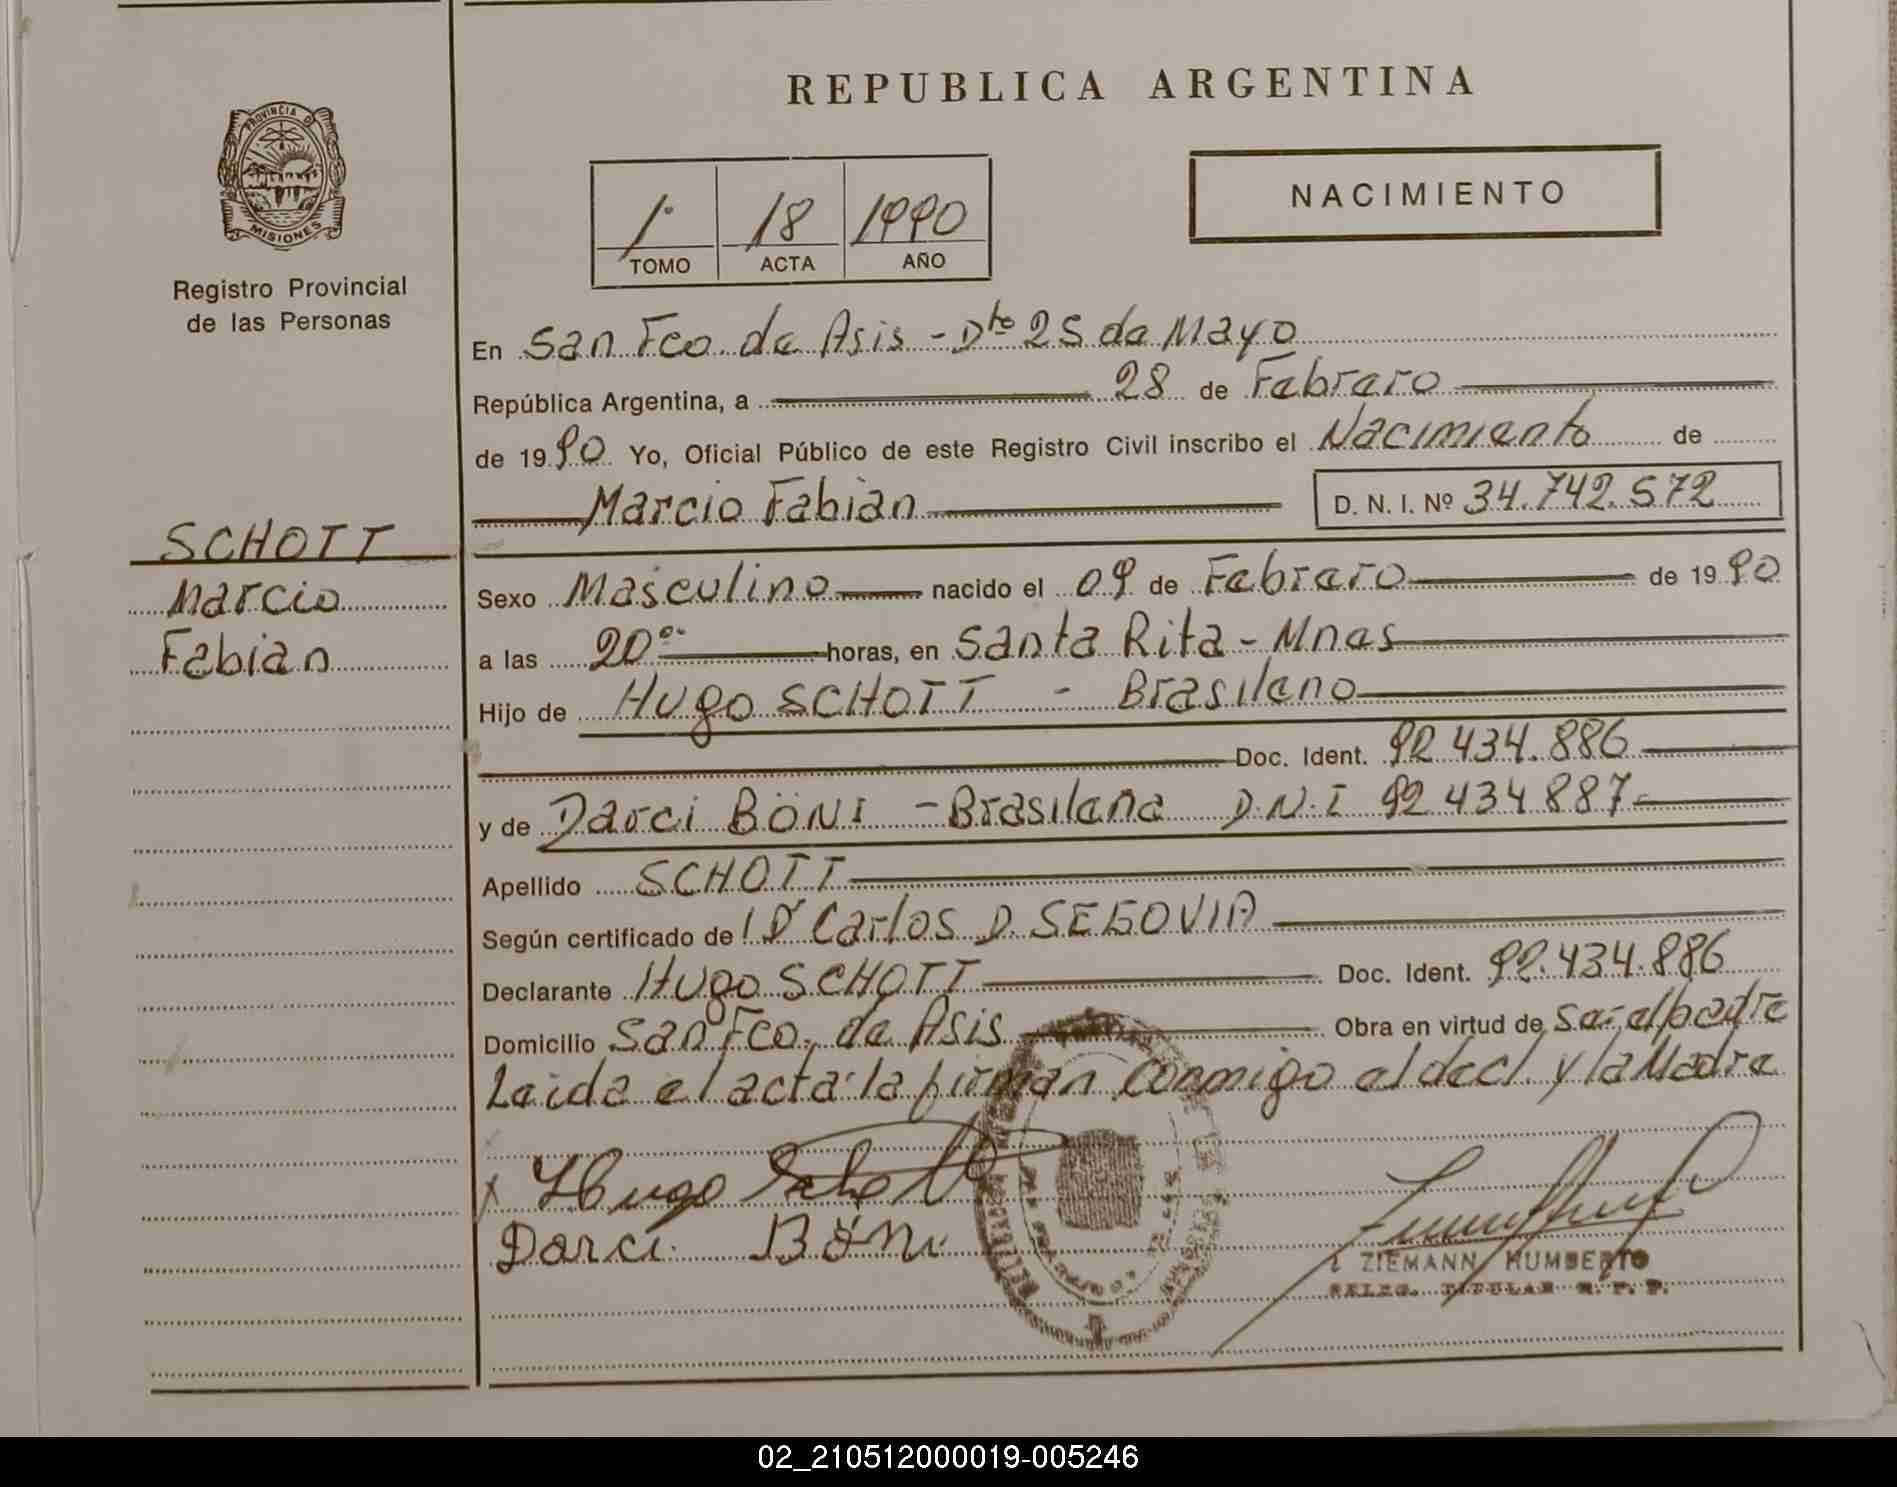 REPUBLICA ARGENTINA
PROVINCIA D
MISIONES
Registro Provincial
de las Personas
NACIMIENTO
1º 18 1990
TOMO ACTA AÑO
En San Fco. de Asis - Dto 25 de Mayo
República Argentina, a 28 de Febrero
de 1990 Yo, Oficial Público de este Registro Civil inscribo el Nacimiento de
Marcio Fabian D. N. I. Nº 34.742.572
SCHOTT
Marcio
Fabian
Sexo Masculino nacido el 09 de Febrero de 1990
a las 20 horas, en Santa Rita - Mnes
Hijo de Hugo SCHOTT - Brasileno
Doc. Ident. 92.434.886
y de Darci BÖNI - Brasilena D.N.I 92 434 887
Apellido SCHOTT
Según certificado de Dr Carlos D. SEGOVIA
Declarante Hugo SCHOTT Doc. Ident. 92.434.886
Domicilio San Fco. de Asis Obra en virtud de Ser el padre
Leida el acta la firman conmigo el decl. y la Madre
Hugo Schott
Darci Böni
ZIEMANN HUMBERTO
DELEG. TITULAR R. P. P.
02_210512000019-005246